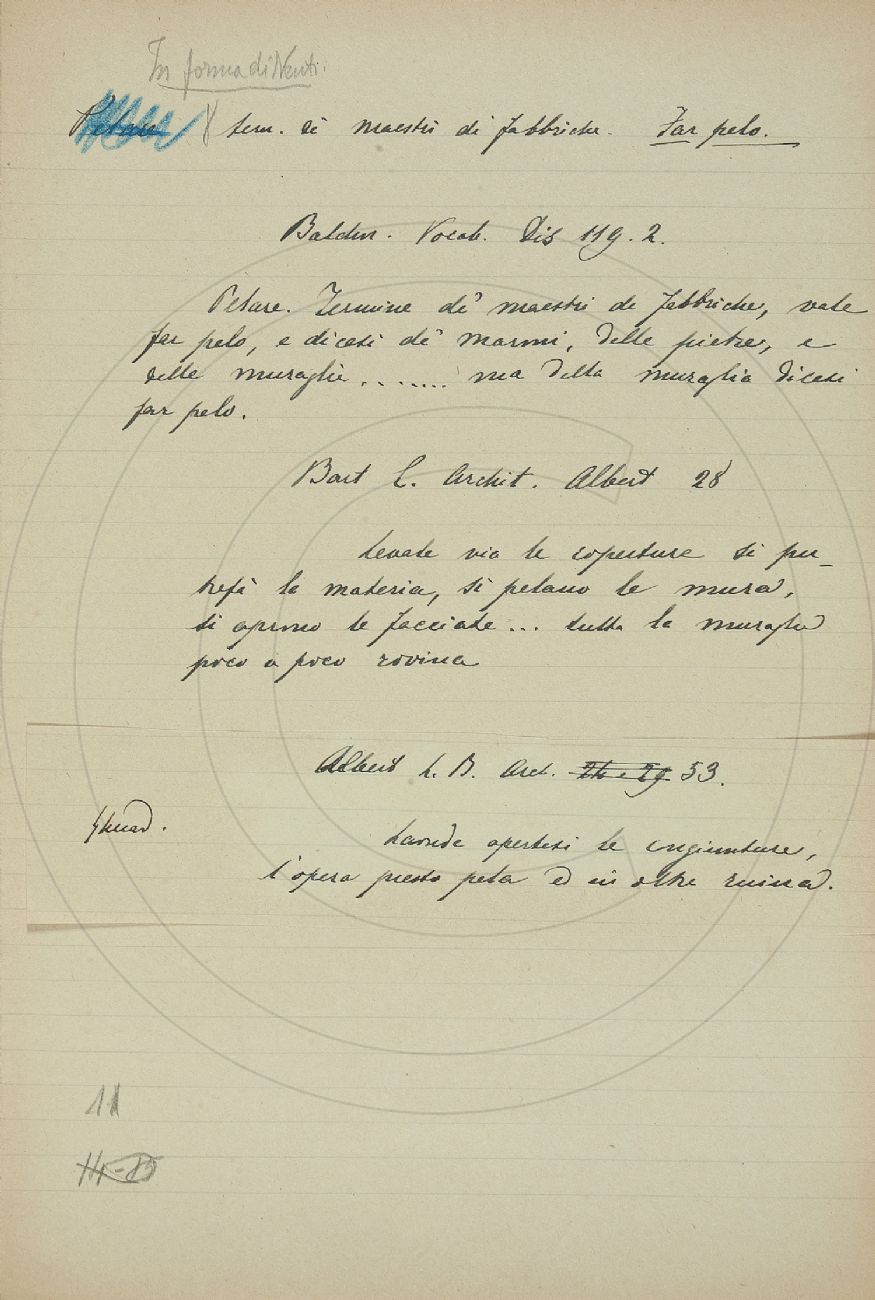 In forma di Neut.
Pelare § Term. de' maestri di fabbriche. Far pelo.
Baldin. Vocab. Dis 119. 2.
Pelare. Termine de' maestri di fabbriche, vale
far pelo, e dicesi de' marmi, delle pietre, e
delle muraglie ....... ma della muraglia dicesi
far pelo.
Bart C. Archit. Albert 28
Levate via le coperture si pu-
trefà la materia, si pelano le mura,
si aprono le facciate ... tutta la muraglia
poco a poco rovina
Albert L. B. Arct. 53.
Laonde apertesi le congiunture,
l'opera presto pela ed in oltre ruina.
11